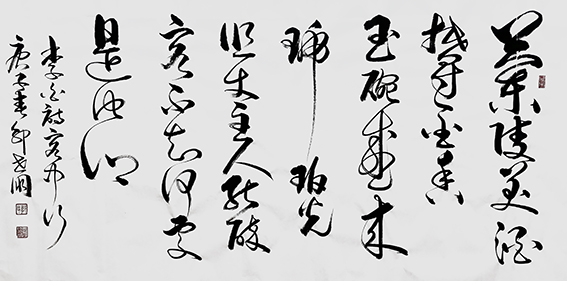 蘭陵美酒
鬱金香
玉碗盛來
琥珀光
但使主人能醉
客不知何處
是他鄉
李白詩客中行
庚子春